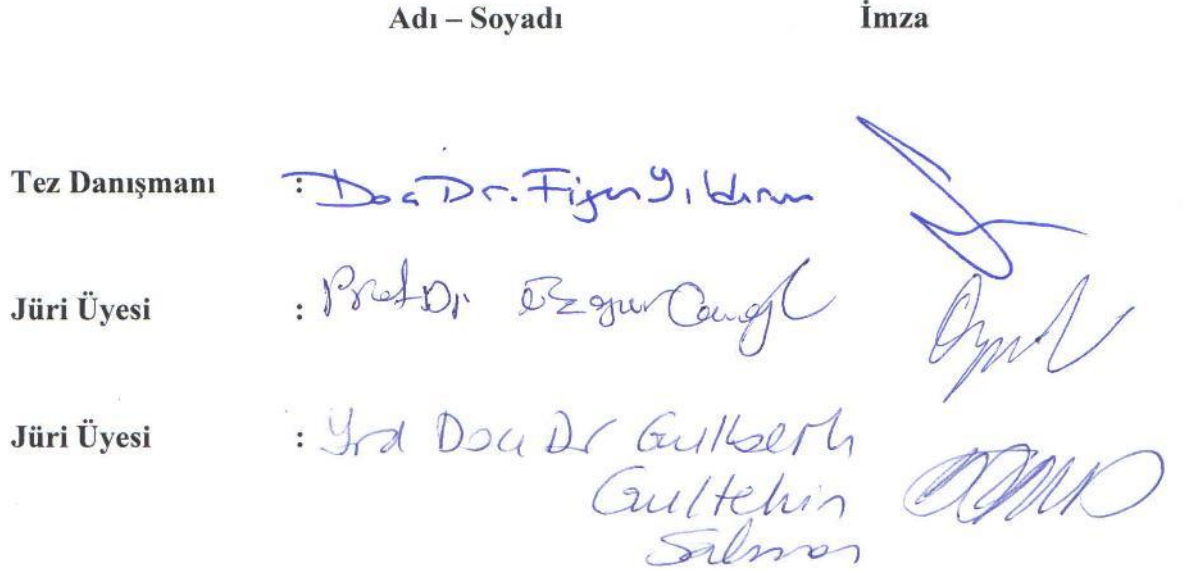 Adı – Soyadı İmza
Tez Danışmanı : Doç Dr. Figen Yıldırım
Jüri Üyesi : Prof Dr Özgur
Jüri Üyesi : Yrd Doç Dr Gulberk
Gultekin
Salman